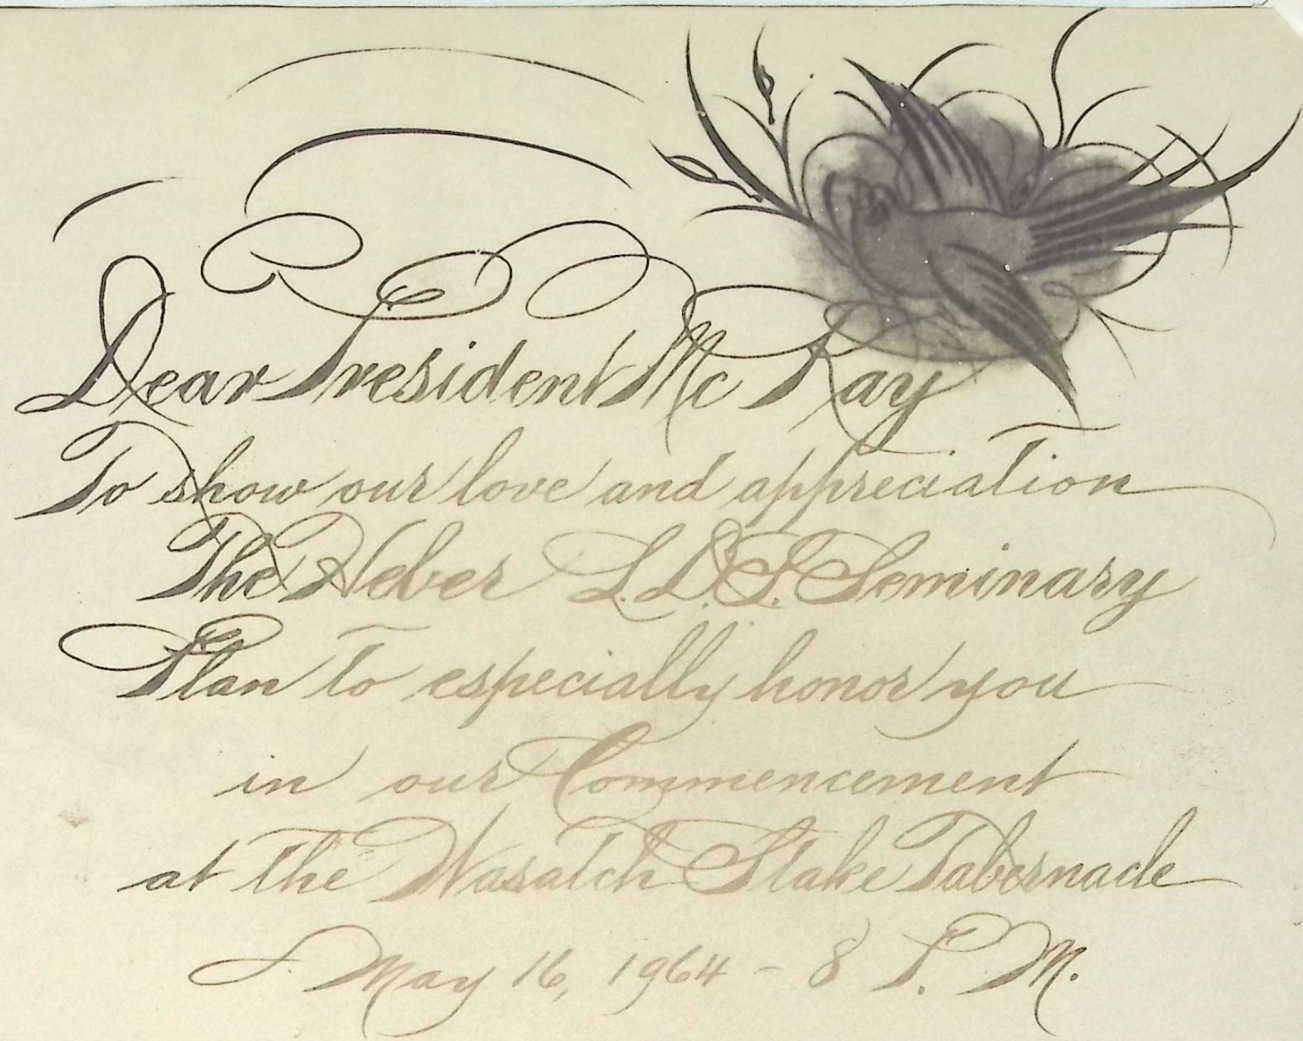 Dear President McKay
To show our love and appreciation
The Heber L.D.S. Seminary
Plan to especially honor you
in our Commencement
at the Wasatch Stake Tabernacle
May 16, 1964 - 8 P. M.